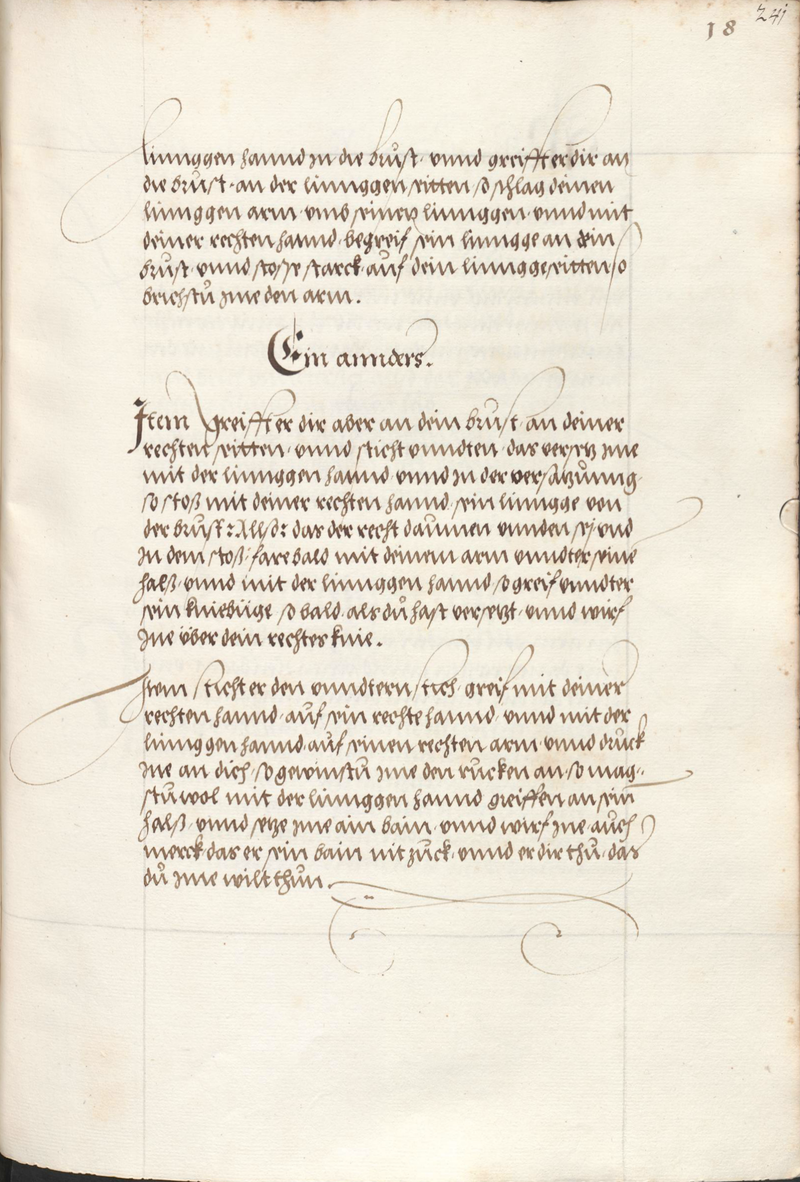 18 241
linnggen hannd jn die brust · vnnd greifft er dir an
die brust · an der linnggen seitten so schlag deinen
linnggen arm · vmb seinen linnggen · vnnd mit
deiner rechten hannd · begreif sein lingge an dein
brust · vnnd stoss starck · auf dein linngge seitten so
brichstů jme den arm .
Ein annders .
Item greifft er dir aber an dein brust · an deiner
rechten seitten · vnnd sticht vnndten · das versetz jme
mit der linnggen hannd · vnnd jn der versatzŭnng ·
so stoß mit deiner rechten hannd · sein lingge von
der brust : Allso : das der recht daumen vnnden sej vnd
jn dem stoß · fare bald mit deinem arm vnndter seine
halß · vnnd mit der linnggen hannd · so greif vnndter
sein kniebüge so bald · als dů hast versetzt · vnnd wirf
jne über dein rechtes knie .
Item sticht er den vnndtern stich · greif mit deiner
rechten hannd · auf sein rechte hannd · vnnd mit der
linnggen hannd · auf seinen rechten arm · vnnd druck
jne an dich · so gewinstů jme den rucken an · so mag-
stů wol mit der linnggen hannd greiffen an sein
halß · vnnd setze jme ain bain · vnnd wirf jne · auch
merck das er sein bain nit zŭck · vnnd er dir thů · das
dů jme wilt thŭn .